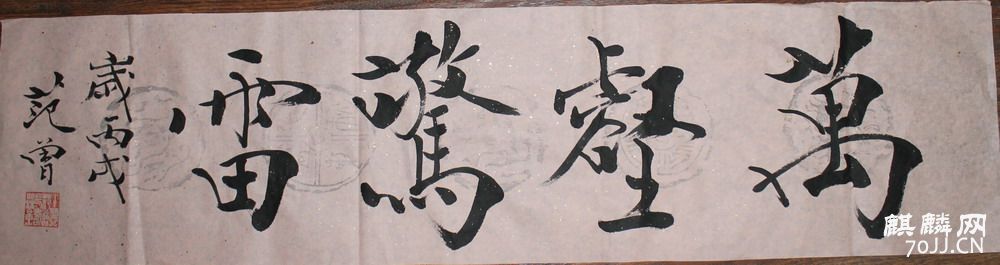 萬壑驚雷
歲丙戌
范曾
麒麟网
70JJ.CN